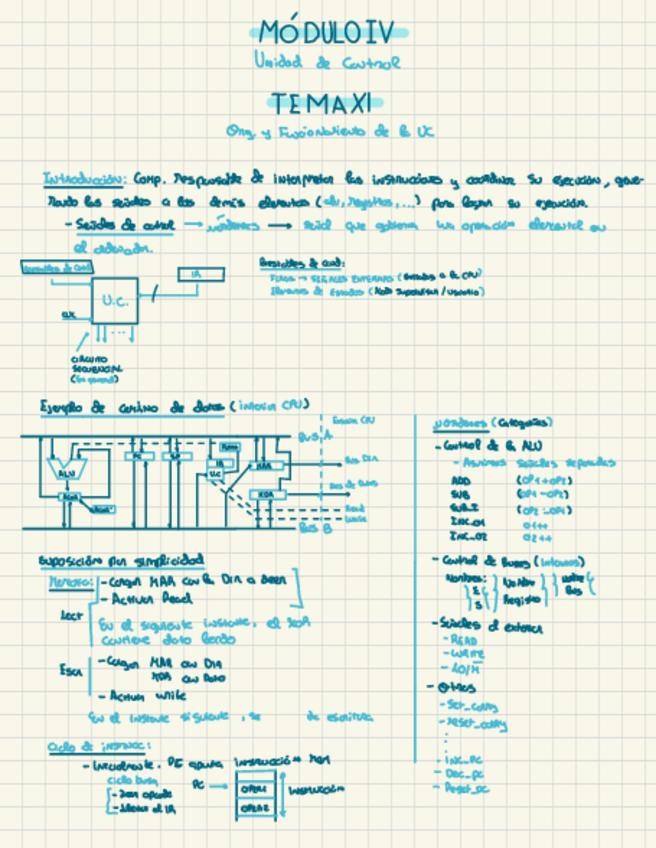 MÓDULO IV
Unidad de Control
TEMA XI
Org. y Funcionamiento de la UC
Introducción: Comp. responsable de interpretar las instrucciones y coordinar su ejecución, gene-
rando las señales a los demás elementos (alu, registros,...) para lograr su ejecución.
- Señales de control → μórdenes → señal que gobierna una operación elemental en
el ordenador.
Variables de Cond
IR
U.C.
CLK
CIRCUITO
SECUENCIAL
(En general)
Variables de Cond:
(Externas a la CPU)
(Modo supervisor / usuario)
Ejemplo de camino de datos (interior CPU)
BUS A
CPU
ALU
PC
SP
IR
U.C
MAR
Bus DIR
Bus de Datos
Read
Write
BUS B
Suposición por simplicidad
Memoria:
- Cargar MAR con la Dir a leer
- Activar Read
Lect
En el siguiente instante, el
contiene dato leído
Escr
- Cargar MAR con Dir
con Dato
- Activar write
En el instante siguiente, se
de escritura
Ciclo de instrucc:
- Inicialmente, PC apunta instrucción
ciclo busq
- Leer opcode
- Llevar al IR
PC →
OPER1
OPER2
Instrucción
μórdenes (Categorías)
- Control de la ALU
- Asumimos señales separadas
ADD (OP1+OP2)
SUB (OP1-OP2)
SUB_I (OP2-OP1)
INC_O1 O1++
INC_O2 O2++
- Control de Buses (internos)
Nombres:
E
S
Nombre
Registro
Nombre
Bus
- Señales al exterior
- READ
- WRITE
- IO/M
- Otras
- Set_carry
- reset_carry
- Inc_PC
- Dec_pc
- Reset_pc